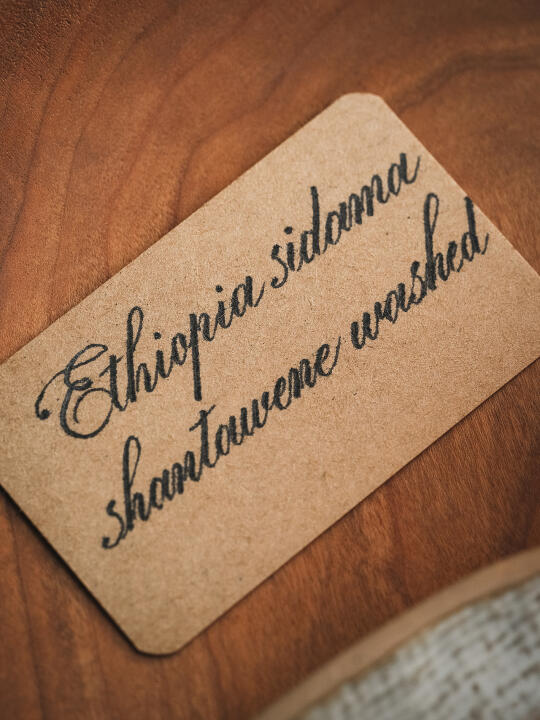 Ethiopia sidama
shantawene washed